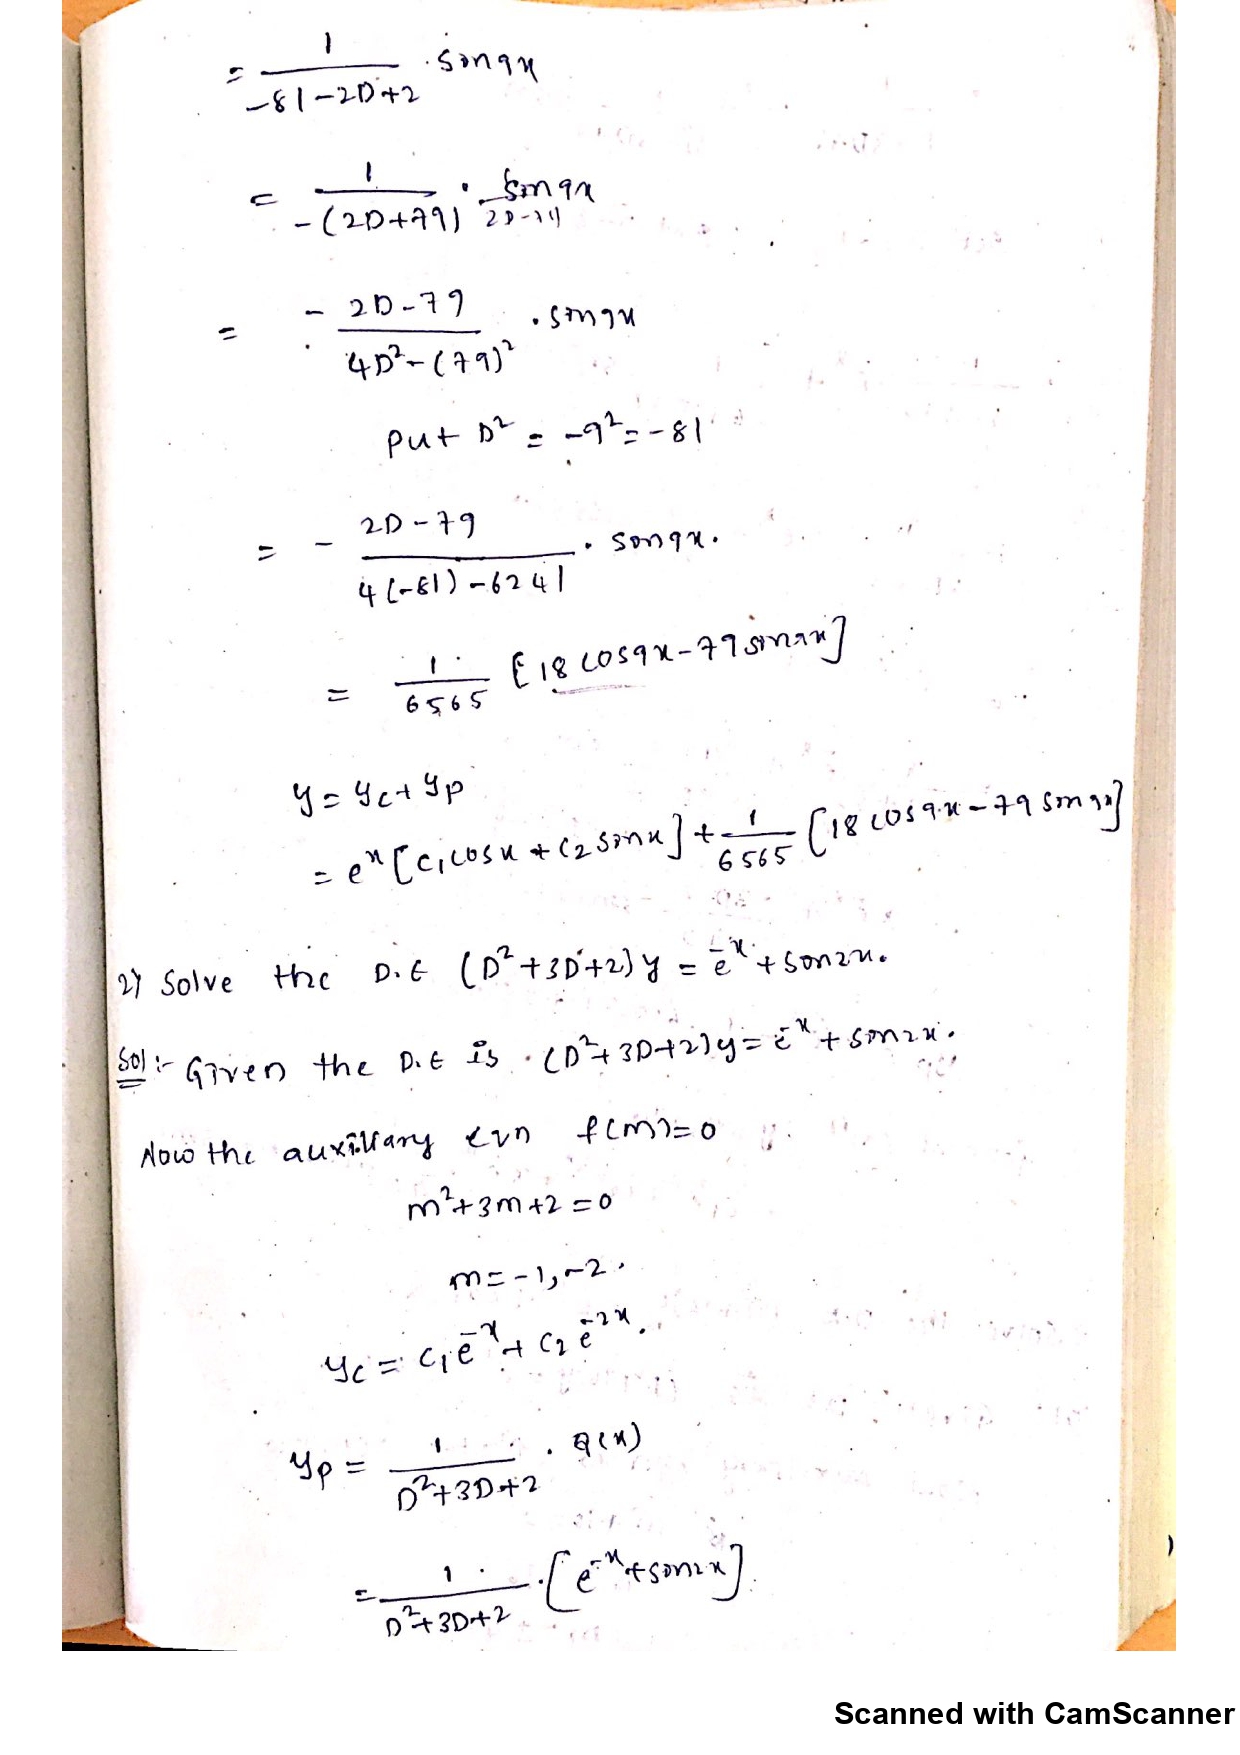 = 1/(-81-2D+2) . sin9x
= 1/-(2D+79) . sin9x/2D-79
= - (2D-79)/(4D²-(79)²) . sin9x
put D² = -9² = -81
= - (2D-79)/(4(-81)-6241) . sin9x.
= 1/6565 [18cos9x-79sin9x]
y = yc + yp
= e^x [c1cosx + c2sinx] + 1/6565 [18cos9x-79sin9x]
2) Solve the D.E (D²+3D+2)y = e^-x + sin2x.
Sol:- Given the D.E is . (D²+3D+2)y = e^-x + sin2x.
Now the auxillary eqn f(m)=0
m²+3m+2=0
m=-1,-2.
yc = c1e^-x + c2e^-2x.
yp = 1/(D²+3D+2) . Q(x)
= 1/(D²+3D+2) . [e^-x+sin2x]
Scanned with CamScanner